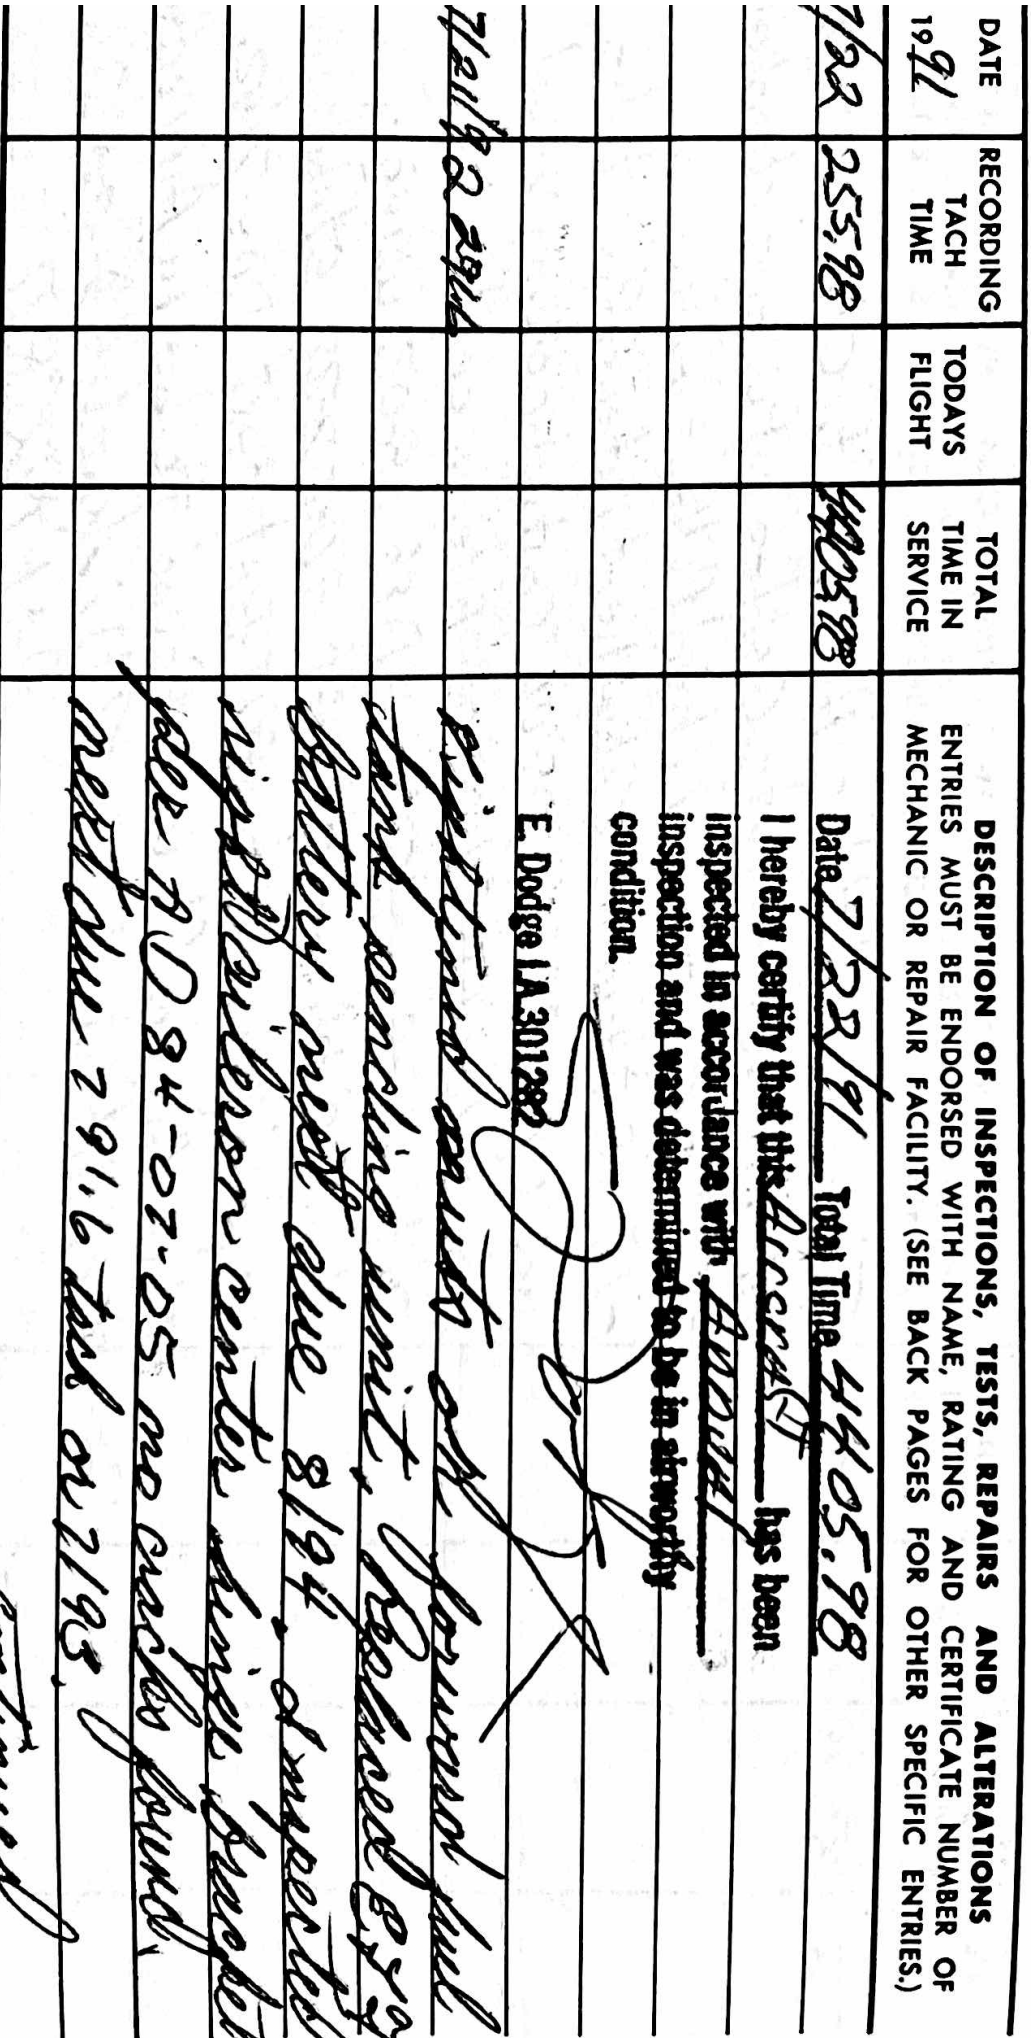 DATE
1991
RECORDING
TACH
TIME
TODAYS
FLIGHT
TOTAL
TIME IN
SERVICE
DESCRIPTION OF INSPECTIONS, TESTS, REPAIRS AND ALTERATIONS
ENTRIES MUST BE ENDORSED WITH NAME, RATING AND CERTIFICATE NUMBER OF
MECHANIC OR REPAIR FACILITY. (SEE BACK PAGES FOR OTHER SPECIFIC ENTRIES.)
7/22 255.98 4405.98 Date 7/22/91 Total Time 4405.98
I hereby certify that this Aircraft has been
inspected in accordance with Annual
inspection and was determined to be in airworthy
condition.
E. Dodge I.A 301282
7/21/92 291.6 nuts on forward fuel
tank sending unit. Replaced
battery next due 8/94. Inspected
right aileron center hinge bracket
per AD 84-07-05 no cracks found
next due 291.6 tach or 7/93.
Continued